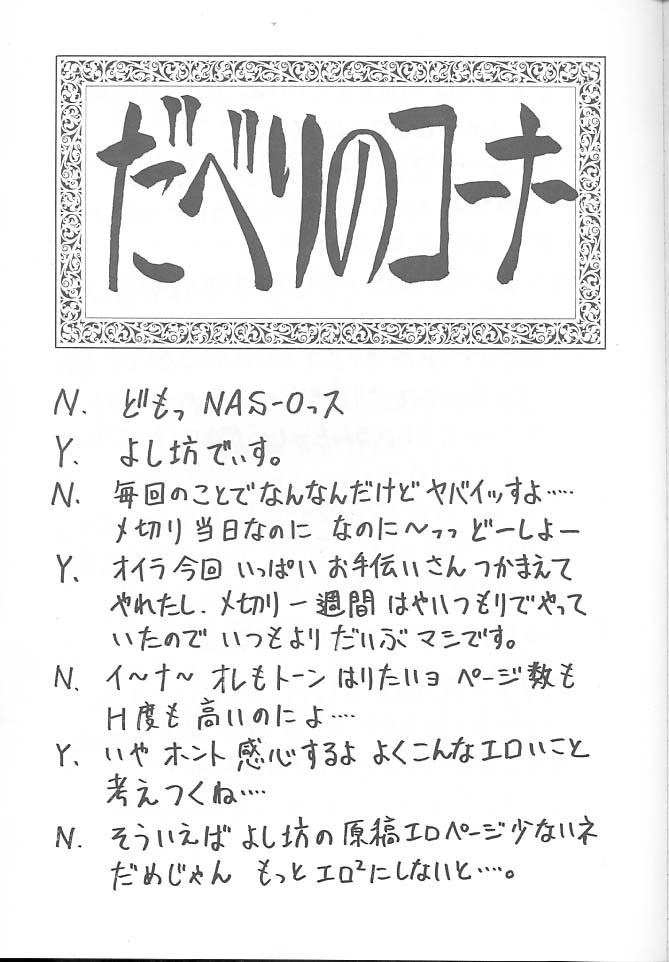 だべりのコーナー
N. どもっ NAS-Oっス
Y. よし坊でいす。
N. 毎回のことでなんなんだけど ヤバイッすよ……
〆切り 当日なのに なのに〜っっ どーしよー
Y. オイラ今回 いっぱい お手伝いさん つかまえて
やれたし. 〆切り 一週間 はやいつもりでやって
いたので いつもより だいぶ マシです。
N. イ〜ナ〜 オレもトーン はりたいョ ページ数も
H度も 高いのによ……
Y. いや ホント 感心するよ よくこんなエロいこと
考えつくね……
N. そういえば よし坊の 原稿エロページ少ないネ
だめじゃん もっと エロ²にしないと……。